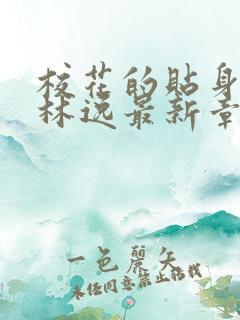 校花的贴身
林逸最新章
一色丽矢
未经同意禁止转载